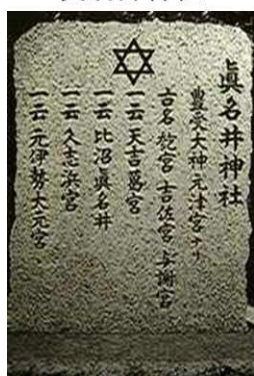 眞名井神社
豊受大神元津宮ナリ
古名 匏宮 吉佐宮 与謝宮
一云 天吉葛宮
一云 比沼眞名井
一云 久志浜宮
一云 元伊勢大元宮